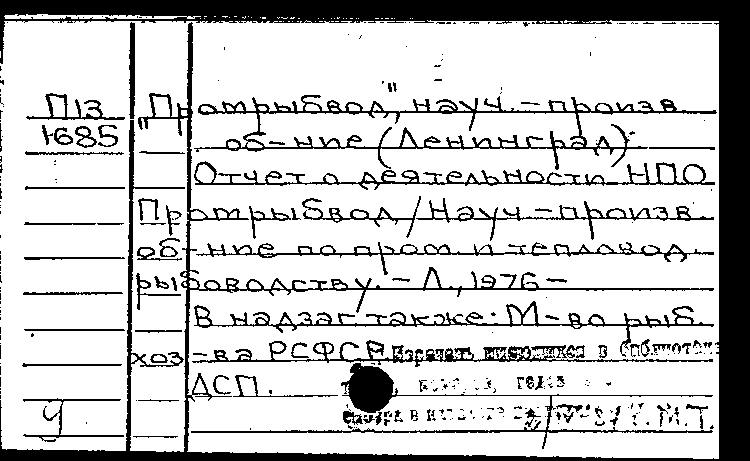 П13 "Промрыбвод", науч.-произв.
1-685 об-ние (Ленинград).
Отчет о деятельности НПО
Промрыбвод / Науч-произв.
об-ние по пром. и тепловод.
рыбоводству. - Л., 1976 -
В надзаг также: М-во рыб.
хоз-ва РСФСР. Перечень имеющихся в библиотеке
ДСП. годов
У